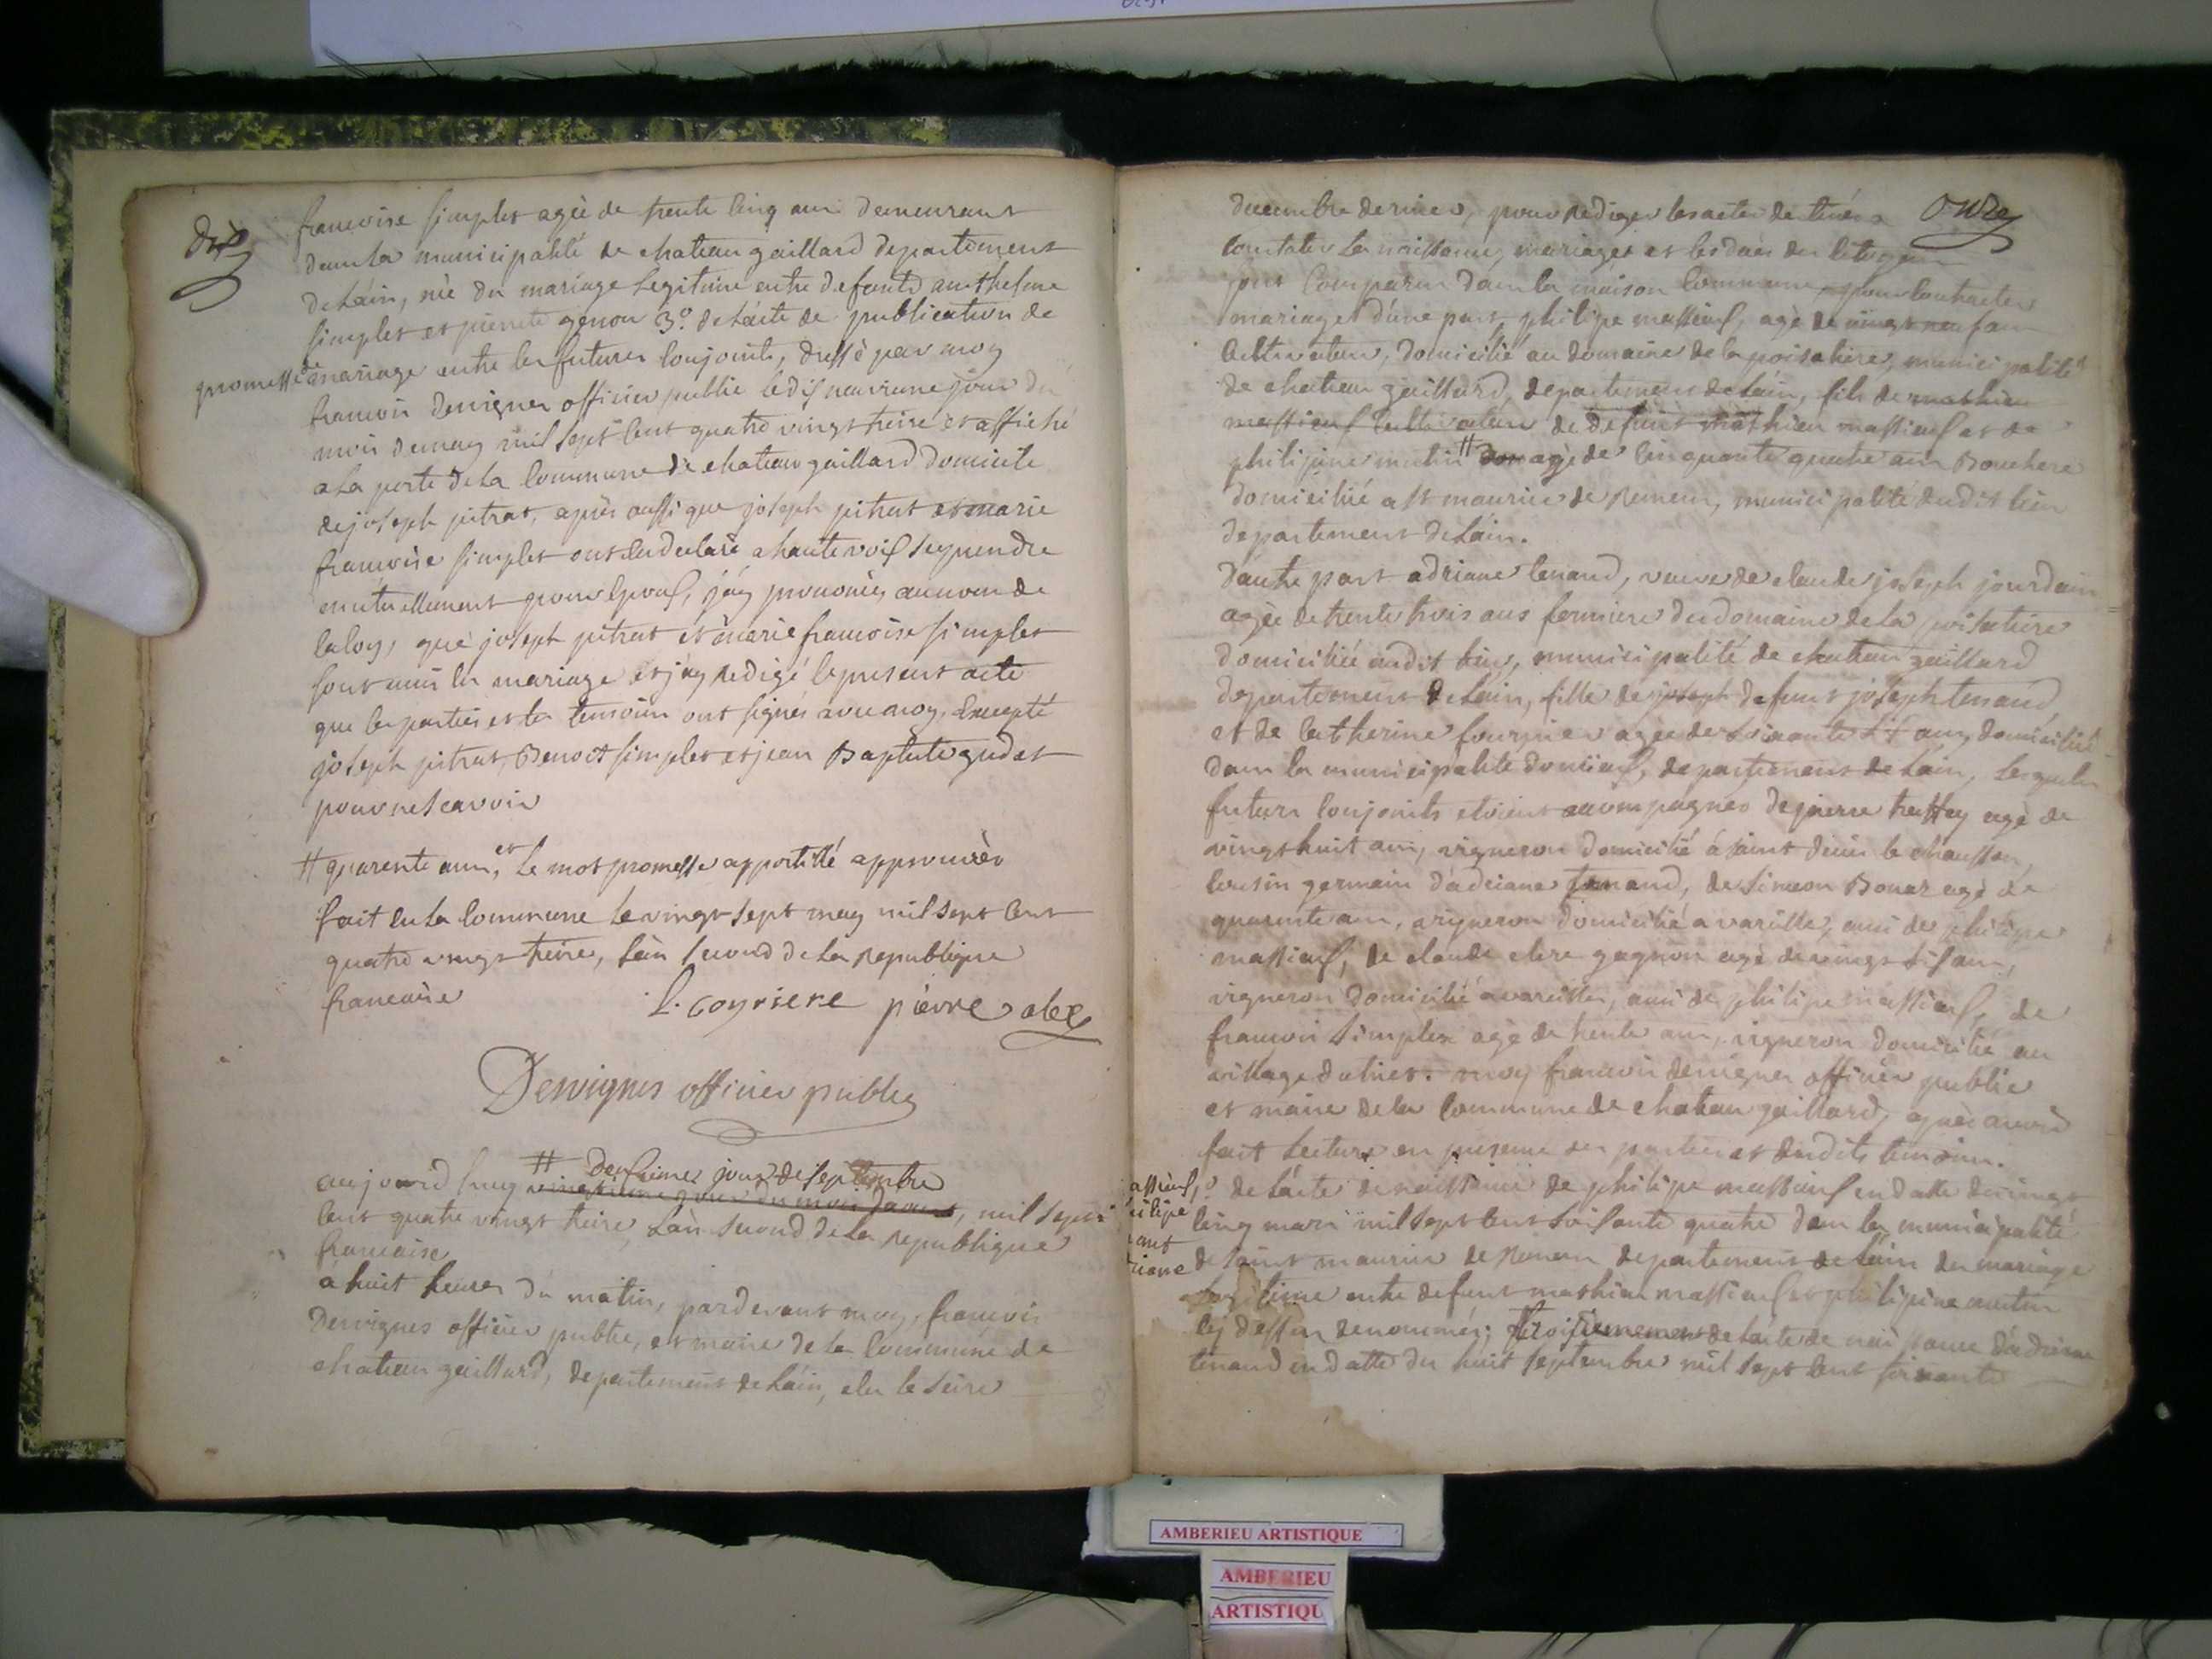 dix
francoise simplet agée de trente cinq ans demeurant
dans la municipalité de chateau gaillard departement
de Láin, née du mariage Legitime entre defunts anthelme
simplet et pierrete genou 3.o de Lácte de publication de
promesse de mariage entre les futures conjoints, dressé par moy
francois Dervignes officier public le dix neuvieme jour du
mois de may mil sept cent quatre vingt treize et affiché
a La porte de La commune de chateau gaillard domicile
de joseph pitrat, après aussi que joseph pitrat et marie
francoise simplet ont eu declaré a haute voix se prendre
mutuellement pour epoux, j'áy prononcé, au nom de
la loy, que joseph pitrat et marie francoise simplet
sont unis en mariage et j'ay redigé le present acte
que les parties et les temoins ont signés avec moy, Excepté
joseph pitrat, Benoit simplet et jean Baptiste gudet
pour ne scavoir
# quarente ans, et Le mot promesse appostillé approuvés
fait en La commune Le vingt sept may mil sept cent
quatre vingt treize, Lán second de La republique
francaise
L. coyriere pierre alex
Dervignes officier public
# deuxieme jour de septembre
aujourd huy vingtieme jour du mois daoust, mil sept
cent quatre vingt treize, Lán second de La republique
francaise
à huit heures du matin, pardevant moy, francois
Dervignes officier public, et maire de La commune de
chateau gaillard, departement de Láin, elu le seize
onze
decembre dernier, pour rediger les actes destinés a
constater La naissance, mariages et les decès des citoyens
sont comparus dans la maison commune, pour contracter
mariage d'une part philipe massieuf, agé de vingt neuf ans
cultivateur, domicilié au domaine de la poisatiere, municipalité
de chateau gaillard, departement de Láin, fils de mathieu
massieuf cultivateur de defunt mathieu massieuf et de
philipine mutin # agé de cinquante quatre ans Bouchere
domiciliée a st maurice de Remens, municipalité dudit lieu
departement de Láin.
D'autre part adriane tenand, veuve de claude joseph jourdain
agée de trente trois ans fermiere du domaine de la poisatiere
domiciliée audit lieu, municipalité de chateau gaillard
departement de Láin, fille de joseph defunt joseph tenand
et de catherine fournier agée de soixante st ans, domiciliée
dans la municipalité , departement de Láin, Lesquels
futurs conjoints etoient accompagnés de pierre agé de
vingt huit ans, vigneron domicilié á saint denis le chausson,
cousin germain d'adriane tenand, de simeon Bonaz agé de
quarente ans, vigneron domicilié a vareille, ami de philipe
massieuf, de claude clere gagnon agé de vingt six ans,
vigneron domicilié a vareilles, ami de philipe massieuf, de
francois simplex agé de trente ans, vigneron domicilié au
village . moy francois dervignes officier public
et maire de la commune de chateau gaillard, après avoir
fait Lecture en presence des parties et desdits temoins.
assieuf
ilipe
riane
de Lácte de naissance de philipe massieuf en datte du vingt
cinq mars mil sept cent soixante quatre dans la municipalité
de saint maurice de Remens departement de Láin du mariage
Legitime entre defunt mathieu massieuf et philipine mutin
cy dessus denommés; troisiemement de Lácte de naissance d'adriane
tenand en datte du huit septembre mil sept cent soixante
AMBERIEU ARTISTIQUE
AMBERIEU
ARTISTIQU